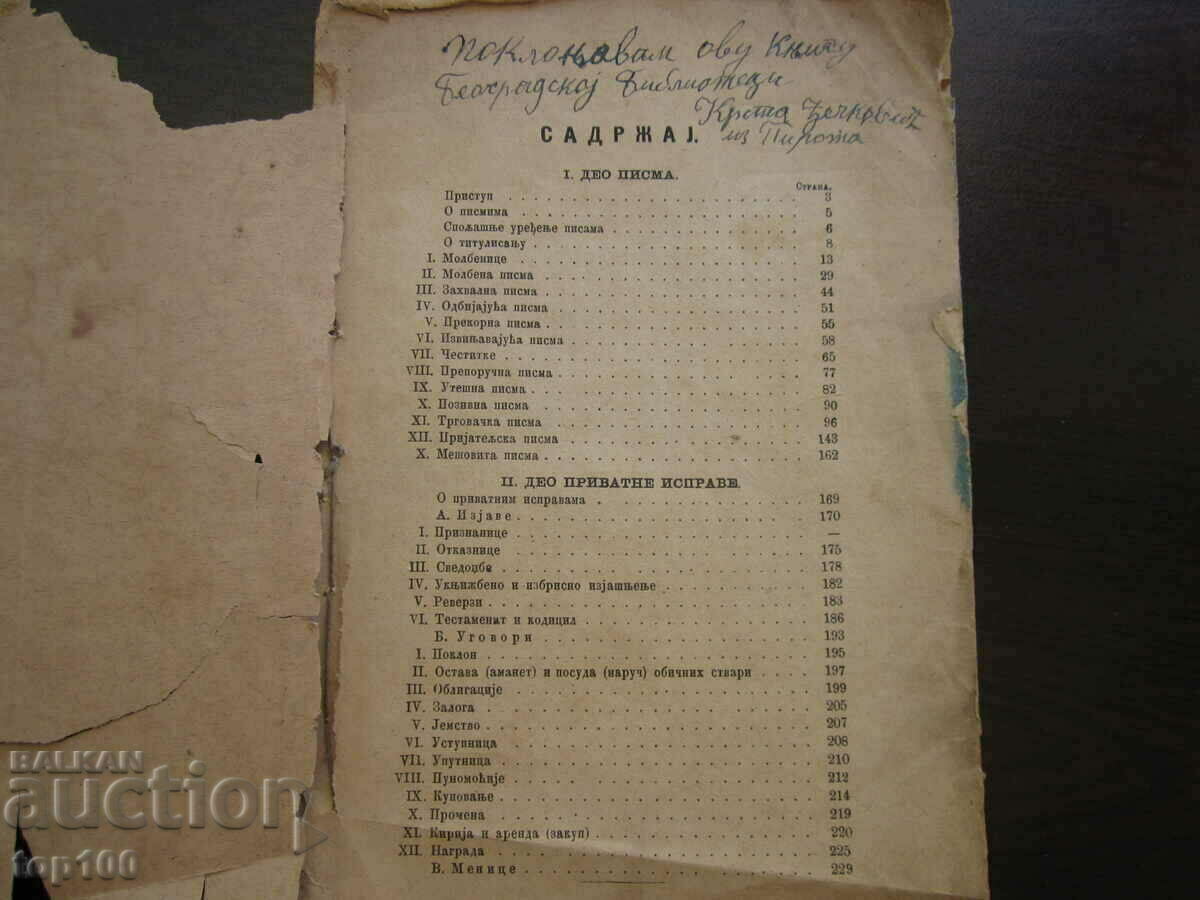 Поклоњавам ову Књигу
Београдској Библиотеци
Крста
из Пирота
САДРЖАЈ.
I. ДЕО ПИСМА.
Страна.
Приступ 3
О писмима 5
Спољашње уређење писама 6
О титулисању 8
I. Молбенице 13
II. Молбена писма 29
III. Захвална писма 44
IV. Одбијајућа писма 51
V. Прекорна писма 55
VI. Извињавајућа писма 58
VII. Честитке 65
VIII. Препоручна писма 77
IX. Утешна писма 82
X. Позивна писма 90
XI. Трговачка писма 96
XII. Пријатељска писма 143
X. Мешовита писма 162
II. ДЕО ПРИВАТНЕ ИСПРАВЕ.
О приватним исправама 169
А. Изјаве 170
I. Признанице —
II. Отказнице 175
III. Сведоџбе 178
IV. Укњижбено и избрисно изјашњење 182
V. Реверзи 183
VI. Тестаменат и кодицил 186
Б. Уговори 193
I. Поклон 195
II. Остава (аманет) и посуда (наруч) обичних ствари 197
III. Облигације 199
IV. Залога 205
V. Јемство 207
VI. Уступница 208
VII. Упутница 210
VIII. Пуномоћије 212
IX. Куповање 214
X. Прочена 219
XI. Кирија и аренда (закуп) 220
XII. Награда 225
В. Менице 229
BALKAN
auction
top100